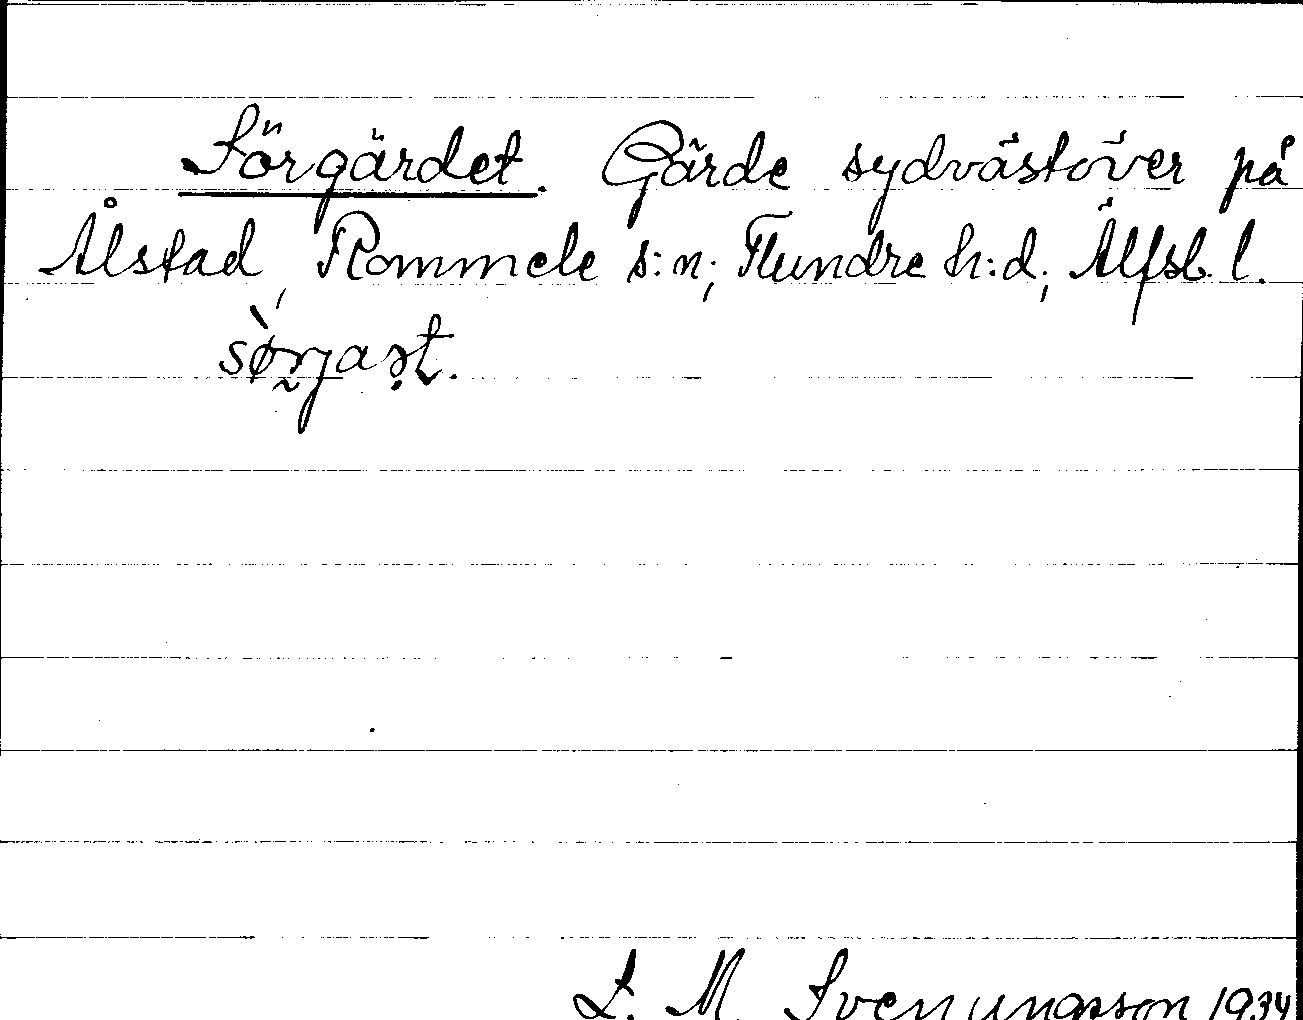 Sörgärdet. Gärde sydvästöver på
Ålstad, Rommele s:n; Flundre h:d; Älfsb. l.
L. M. Svenungsson 1934